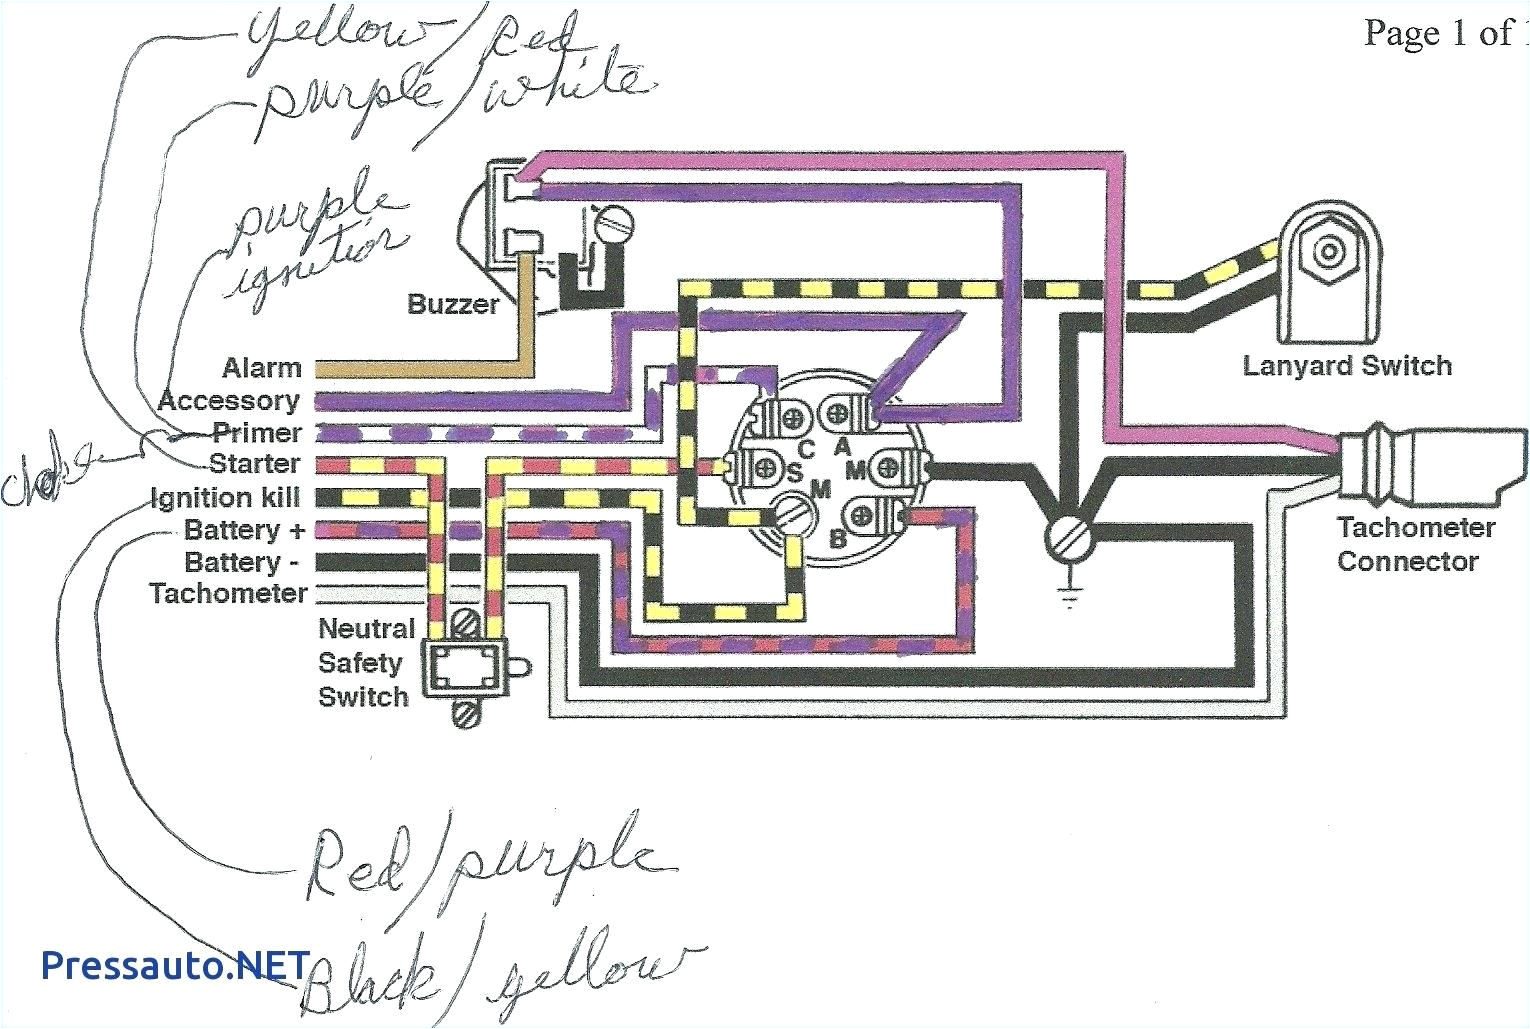 Page 1 of 1
Yellow/Red
purple/white
purple
ignition
Buzzer
Alarm
Accessory
Primer
Starter
Ignition kill
Battery +
Battery -
Tachometer
choke
Neutral
Safety
Switch
C
A
S
M
M
B
Lanyard Switch
Tachometer
Connector
Red/purple
Black/yellow
Pressauto.NET